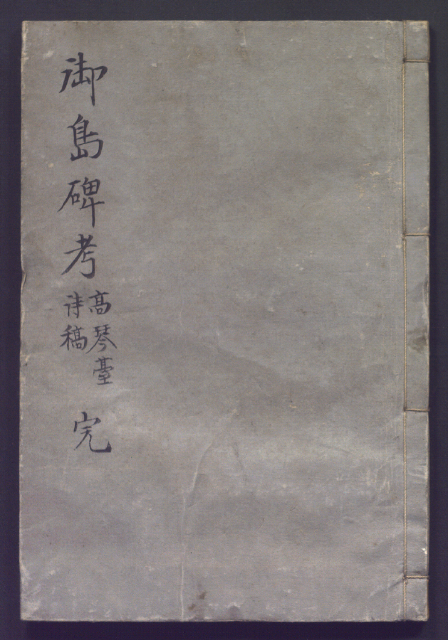 御島碑考
高琴臺
詩稿
完